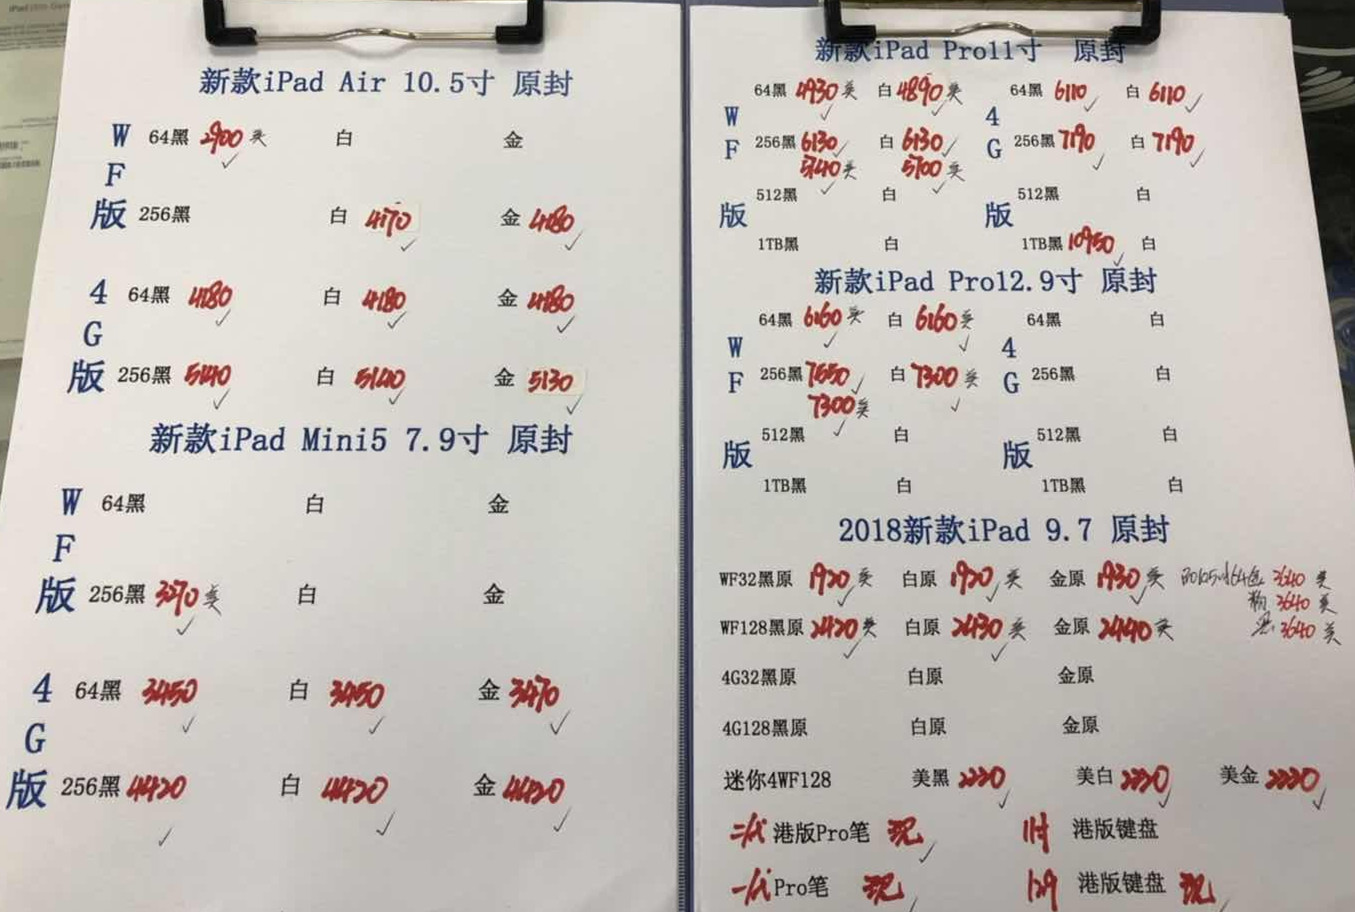 新款iPad Air 10.5寸 原封
WF版
64黑 2900 美 白 金
256黑 白 4170 金 4180
4G版
64黑 4180 白 4180 金 4180
256黑 5140 白 5140 金 5130
新款iPad Mini5 7.9寸 原封
WF版
64黑 白 金
256黑 3270 美 白 金
4G版
64黑 3450 白 3450 金 3470
256黑 4420 白 4420 金 4420
新款iPad Pro11寸 原封
WF版
64黑 4930 美 白 4890 美
256黑 6130 白 6130
5740 美 5700 美
512黑 白
1TB黑 白
4G版
64黑 6110 白 6110
256黑 7190 白 7190
512黑 白
1TB黑 10950 白
新款iPad Pro12.9寸 原封
WF版
64黑 6160 美 白 6160 美
256黑 7550 白 7300 美
7300 美
512黑 白
1TB黑 白
4G版
64黑 白
256黑 白
512黑 白
1TB黑 白
2018新款iPad 9.7 原封
WF32黑原 1920 美 白原 1920 美 金原 1930 美
3640 美
3640 美
3640 美
WF128黑原 2420 美 白原 2430 美 金原 2440 美
4G32黑原 白原 金原
4G128黑原 白原 金原
迷你4WF128 美黑 2220 美白 2220 美金 2220
二代 港版Pro笔 现 11寸 港版键盘
一代 Pro笔 现 129 港版键盘 现